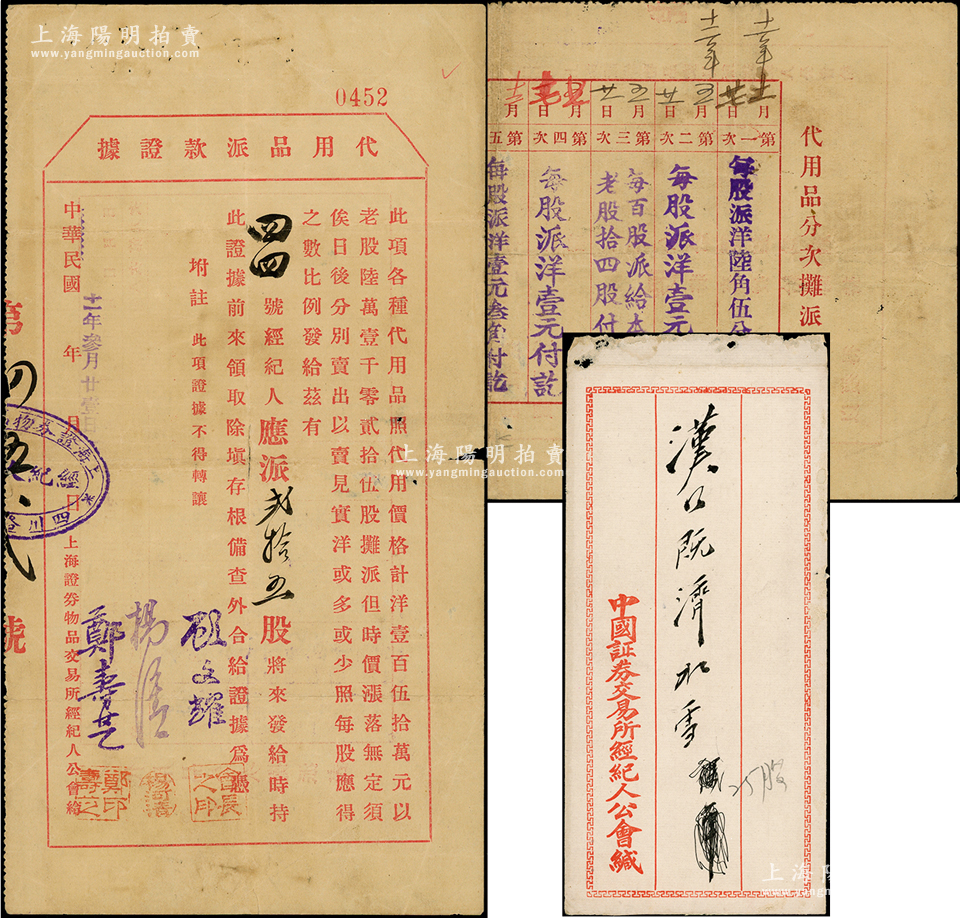 上海陽明拍賣
www.yangmingauction.com
0452
代用品派款證據
此項各種代用品照代用價格計洋壹百伍拾萬元以
老股陸萬壹千零貳拾伍股攤派但時價漲落無定須
俟日後分別賣出以賣見實洋或多或少照每股應得
之數比例發給茲有
四四號經紀人應派貳拾五股將來發給時持
此證據前來領取除塡存根備查外合給證據爲憑
附註 此項證據不得轉讓
中華民國 年 月 日 上海證劵物品交易所經紀人公會給
十一年參月廿壹日
第四五八貳號
上海證券物
經紀
四川
顧文耀
楊濤
鄭壽芝
會長之印
鄭壽之印
代用品分次攤派
十二年
十二年
第一次 月 日
每股派洋陸角伍分
第二次 五月廿日
每股派洋壹元
第三次 五月廿日
每百股派給本
老股拾四股付
第四次 月 日
每股派洋壹元付訖
第五 月
每股派洋壹元叁角付訖
漢口阮濟北雪
25股
中國証券交易所經紀人公會緘
上海陽明拍賣
www.yangmingauction.com
上海陽明拍賣
www.yangmingauction.com